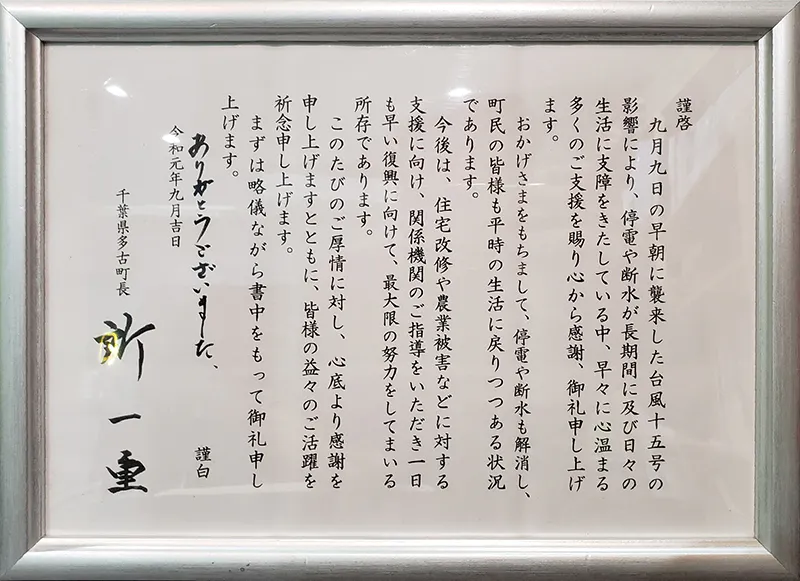 謹啓
九月九日の早朝に襲来した台風十五号の
影響により、停電や断水が長期間に及び日々の
生活に支障をきたしている中、早々に心温まる
多くのご支援を賜り心から感謝、御礼申し上げ
ます。
おかげさまをもちまして、停電や断水も解消し、
町民の皆様も平時の生活に戻りつつある状況
であります。
今後は、住宅改修や農業被害などに対する
支援に向け、関係機関のご指導をいただき一日
も早い復興に向けて、最大限の努力をしてまいる
所存であります。
このたびのご厚情に対し、心底より感謝を
申し上げますとともに、皆様の益々のご活躍を
祈念申し上げます。
まずは略儀ながら書中をもって御礼申し
上げます。
謹白
ありがとうございました、
令和元年九月吉日
千葉県多古町長
所 一重